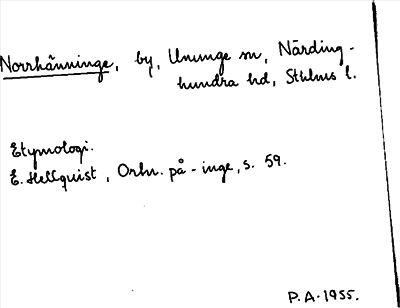 Norrhänninge, by, Ununge sn, Närding-
hundra hd, Sthlms l.
Etymologi.
E. Hellquist, Ortn. på -inge, s. 59.
P.A. 1955.